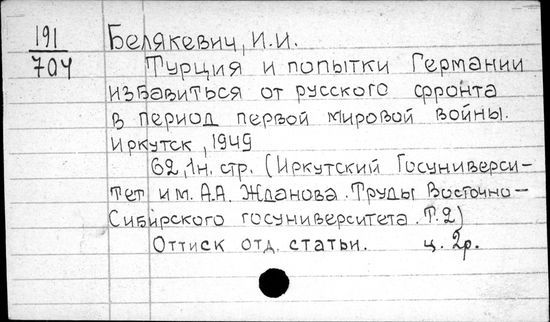 191
704
Белякевич, И.И.
Турция и попытки Германии
избавиться от русского фронта
в период первой мировой войны.
Иркутск, 1949
62, 1н. стр. (Иркутский Госуниверси-
тет им. А.А. Жданова. Труды Восточно-
Сибирского госуниверситета. Т.2)
Оттиск отд. статьи. ц. 2р.